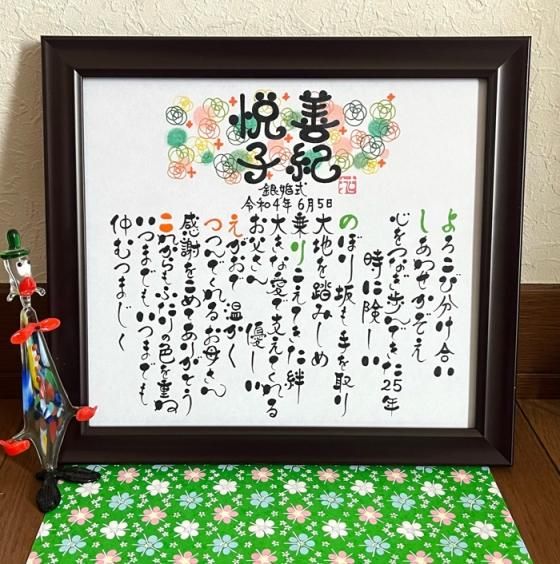 善紀
悦子
銀婚式
令和4年6月5日
よろこび分け合い
しあわせかぞえ
心をつなぎ歩んできた25年
時に険しい
のぼり坂も手を取り
大地を踏みしめ
乗りこえてきた絆
大きな愛で支えてくれる
お父さん 優しい
えがおで 温かく
つつんでくれるお母さん
感謝をこめてありがとう
これからもふたりの色を重ね
いつまでもいつまでも
仲むつまじく